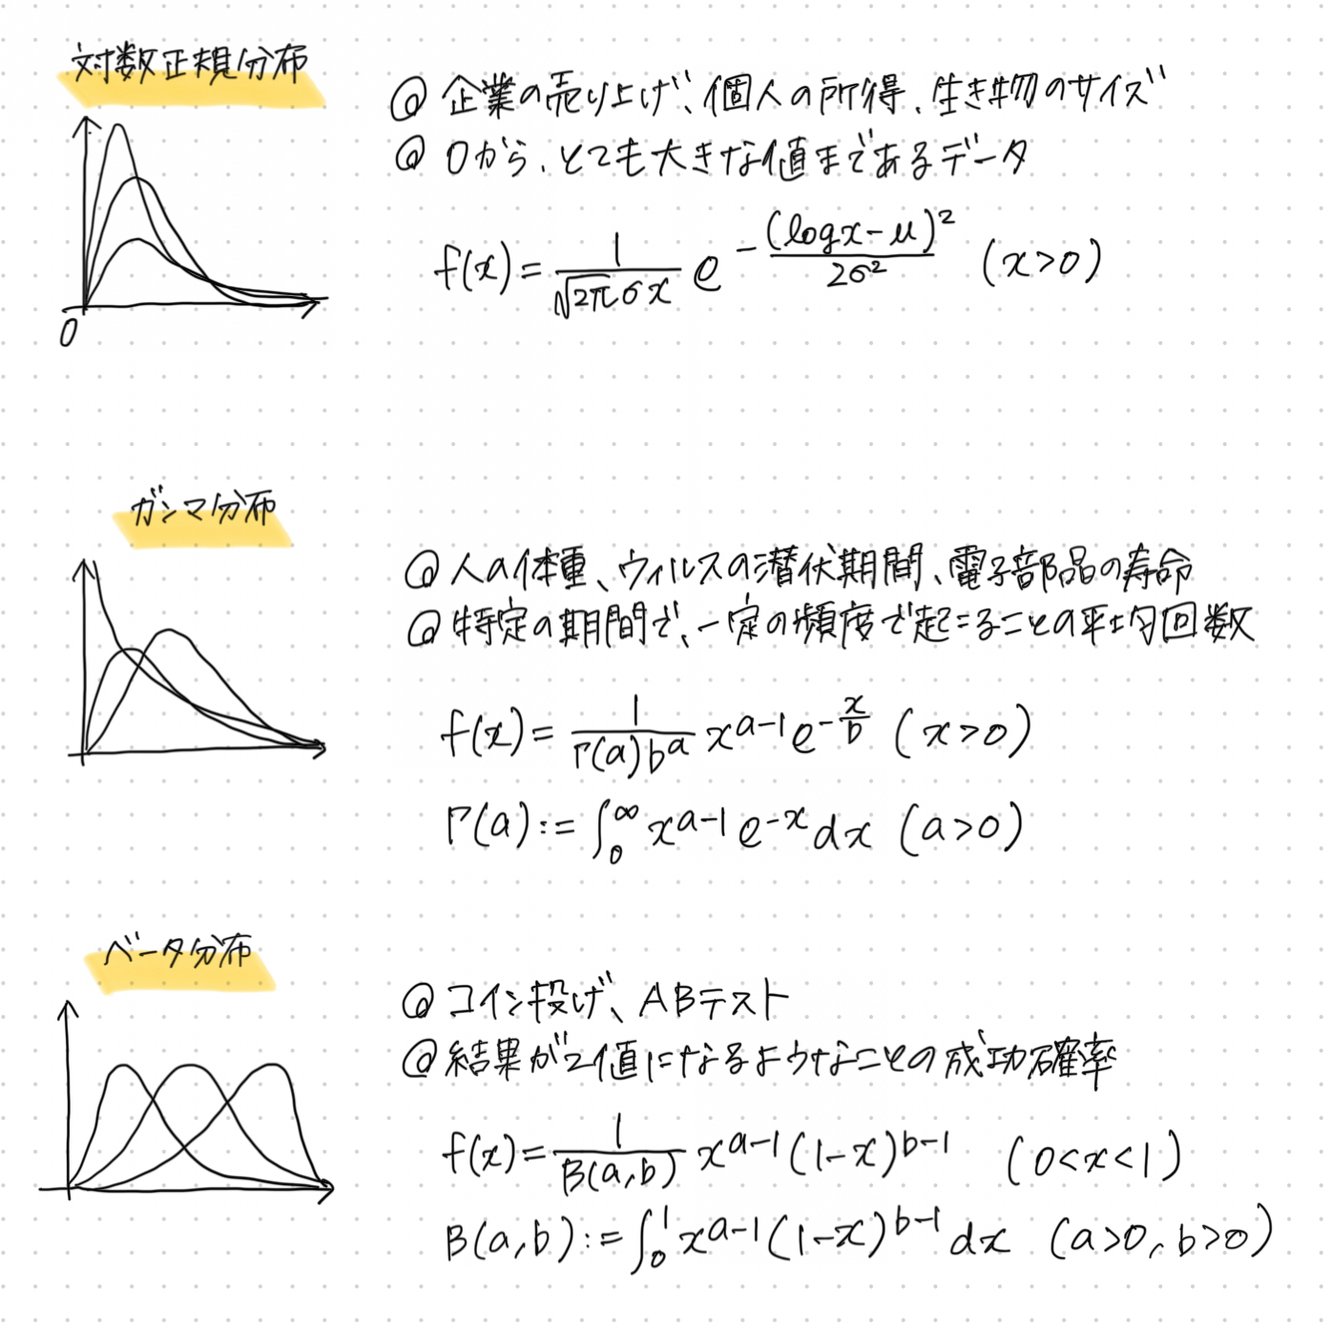 対数正規分布
@ 企業の売り上げ、個人の所得、生き物のサイズ
@ 0から、とても大きな値まであるデータ
f(x) = 1/(√2π σx) e^(-(logx-μ)²/2σ²) (x>0)
0
ガンマ分布
@ 人の体重、ウィルスの潜伏期間、電子部品の寿命
@ 特定の期間で、一定の頻度で起こることの平均回数
f(x) = 1/(Γ(a)b^a) x^(a-1) e^(-x/b) (x>0)
Γ(a) := ∫₀^∞ x^(a-1) e^(-x) dx (a>0)
ベータ分布
@ コイン投げ、ABテスト
@ 結果が2値になるようなことの成功確率
f(x) = 1/B(a,b) x^(a-1) (1-x)^(b-1) (0<x<1)
B(a,b) := ∫₀^1 x^(a-1) (1-x)^(b-1) dx (a>0, b>0)